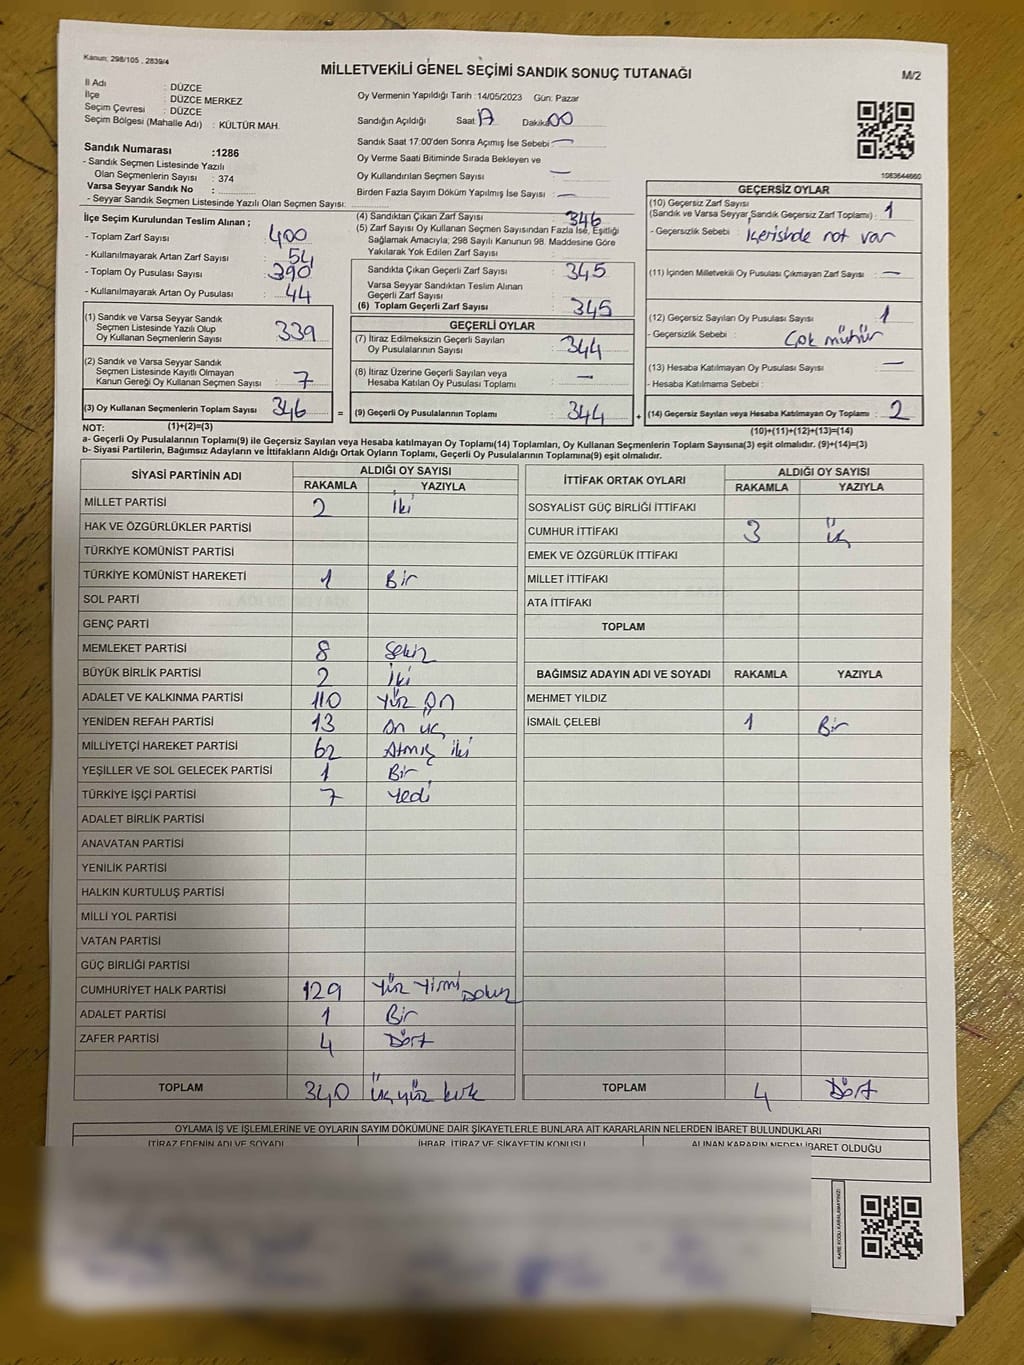 Kanun; 298/105 , 2839/4
MİLLETVEKİLİ GENEL SEÇİMİ SANDIK SONUÇ TUTANAĞI
M/2
İl Adı : DÜZCE
İlçe : DÜZCE MERKEZ
Seçim Çevresi : DÜZCE
Seçim Bölgesi (Mahalle Adı) : KÜLTÜR MAH.
Sandık Numarası :1286
- Sandık Seçmen Listesinde Yazılı
Olan Seçmenlerin Sayısı : 374
Varsa Seyyar Sandık No :
- Seyyar Sandık Seçmen Listesinde Yazılı Olan Seçmen Sayısı:
Oy Vermenin Yapıldığı Tarih :14/05/2023 Gün: Pazar
Sandığın Açıldığı Saat: 17 Dakika: 00
Sandık Saat 17:00'den Sonra Açımış İse Sebebi : —
Oy Verme Saati Bitiminde Sırada Bekleyen ve
Oy Kullandırılan Seçmen Sayısı : —
Birden Fazla Sayım Döküm Yapılmış İse Sayısı : —
1083644660
İlçe Seçim Kurulundan Teslim Alınan ;
- Toplam Zarf Sayısı : 400
- Kullanılmayarak Artan Zarf Sayısı : 54
- Toplam Oy Pusulası Sayısı : 390
- Kullanılmayarak Artan Oy Pusulası : 44
(1) Sandık ve Varsa Seyyar Sandık
Seçmen Listesinde Yazılı Olup
Oy Kullanan Seçmenlerin Sayısı : 339
(2) Sandık ve Varsa Seyyar Sandık
Seçmen Listesinde Kayıtlı Olmayan
Kanun Gereği Oy Kullanan Seçmen Sayısı : 7
(3) Oy Kullanan Seçmenlerin Toplam Sayısı : 346
(4) Sandıktan Çıkan Zarf Sayısı : 346
(5) Zarf Sayısı Oy Kullanan Seçmen Sayısından Fazla İse, Eşitliği
Sağlamak Amacıyla; 298 Sayılı Kanunun 98. Maddesine Göre
Yakılarak Yok Edilen Zarf Sayısı :
Sandıkta Çıkan Geçerli Zarf Sayısı : 345
Varsa Seyyar Sandıktan Teslim Alınan
Geçerli Zarf Sayısı :
(6) Toplam Geçerli Zarf Sayısı : 345
GEÇERLİ OYLAR
(7) İtiraz Edilmeksizin Geçerli Sayılan
Oy Pusulalarının Sayısı : 344
(8) İtiraz Üzerine Geçerli Sayılan veya
Hesaba Katılan Oy Pusulası Toplamı : —
= (9) Geçerli Oy Pusulalarının Toplamı : 344
GEÇERSİZ OYLAR
(10) Geçersiz Zarf Sayısı
(Sandık ve Varsa Seyyar Sandık Geçersiz Zarf Toplamı) : 1
- Geçersizlik Sebebi : İçerisinde not var
(11) İçinden Milletvekili Oy Pusulası Çıkmayan Zarf Sayısı : —
(12) Geçersiz Sayılan Oy Pusulası Sayısı : 1
- Geçersizlik Sebebi : Çok mühür
(13) Hesaba Katılmayan Oy Pusulası Sayısı : —
- Hesaba Katılmama Sebebi :
+ (14) Geçersiz Sayılan veya Hesaba Katılmayan Oy Toplamı : 2
NOT: (1)+(2)=(3)
(10)+(11)+(12)+(13)=(14)
a- Geçerli Oy Pusulalarının Toplamı(9) ile Geçersiz Sayılan veya Hesaba katılmayan Oy Toplamı(14) Toplamları, Oy Kullanan Seçmenlerin Toplam Sayısına(3) eşit olmalıdır. (9)+(14)=(3)
b- Siyasi Partilerin, Bağımsız Adayların ve İttifakların Aldığı Ortak Oyların Toplamı, Geçerli Oy Pusulalarının Toplamına(9) eşit olmalıdır.
SİYASİ PARTİNİN ADI ALDIĞI OY SAYISI
RAKAMLA YAZIYLA
MİLLET PARTİSİ 2 İki
HAK VE ÖZGÜRLÜKLER PARTİSİ
TÜRKİYE KOMÜNİST PARTİSİ
TÜRKİYE KOMÜNİST HAREKETİ 1 Bir
SOL PARTİ
GENÇ PARTİ
MEMLEKET PARTİSİ 8 Sekiz
BÜYÜK BİRLİK PARTİSİ 2 İki
ADALET VE KALKINMA PARTİSİ 110 Yüz On
YENİDEN REFAH PARTİSİ 13 On üç
MİLLİYETÇİ HAREKET PARTİSİ 62 Atmış iki
YEŞİLLER VE SOL GELECEK PARTİSİ 1 Bir
TÜRKİYE İŞÇİ PARTİSİ 7 Yedi
ADALET BİRLİK PARTİSİ
ANAVATAN PARTİSİ
YENİLİK PARTİSİ
HALKIN KURTULUŞ PARTİSİ
MİLLİ YOL PARTİSİ
VATAN PARTİSİ
GÜÇ BİRLİĞİ PARTİSİ
CUMHURİYET HALK PARTİSİ 129 Yüz Yirmi Dokuz
ADALET PARTİSİ 1 Bir
ZAFER PARTİSİ 4 Dört
TOPLAM 340 Üçyüz kırk
İTTİFAK ORTAK OYLARI ALDIĞI OY SAYISI
RAKAMLA YAZIYLA
SOSYALİST GÜÇ BİRLİĞİ İTTİFAKI
CUMHUR İTTİFAKI 3 Üç
EMEK VE ÖZGÜRLÜK İTTİFAKI
MİLLET İTTİFAKI
ATA İTTİFAKI
TOPLAM
BAĞIMSIZ ADAYIN ADI VE SOYADI RAKAMLA YAZIYLA
MEHMET YILDIZ
İSMAİL ÇELEBİ 1 Bir
TOPLAM 4 Dört
OYLAMA İŞ VE İŞLEMLERİNE VE OYLARIN SAYIM DÖKÜMÜNE DAİR ŞİKAYETLERLE BUNLARA AİT KARARLARIN NELERDEN İBARET BULUNDUKLARI
İTİRAZ EDENİN ADI VE SOYADI İHBAR, İTİRAZ VE ŞİKAYETİN KONUSU ALINAN KARARIN NEDEN İBARET OLDUĞU
KARE KODU KARALAMAYINIZ!